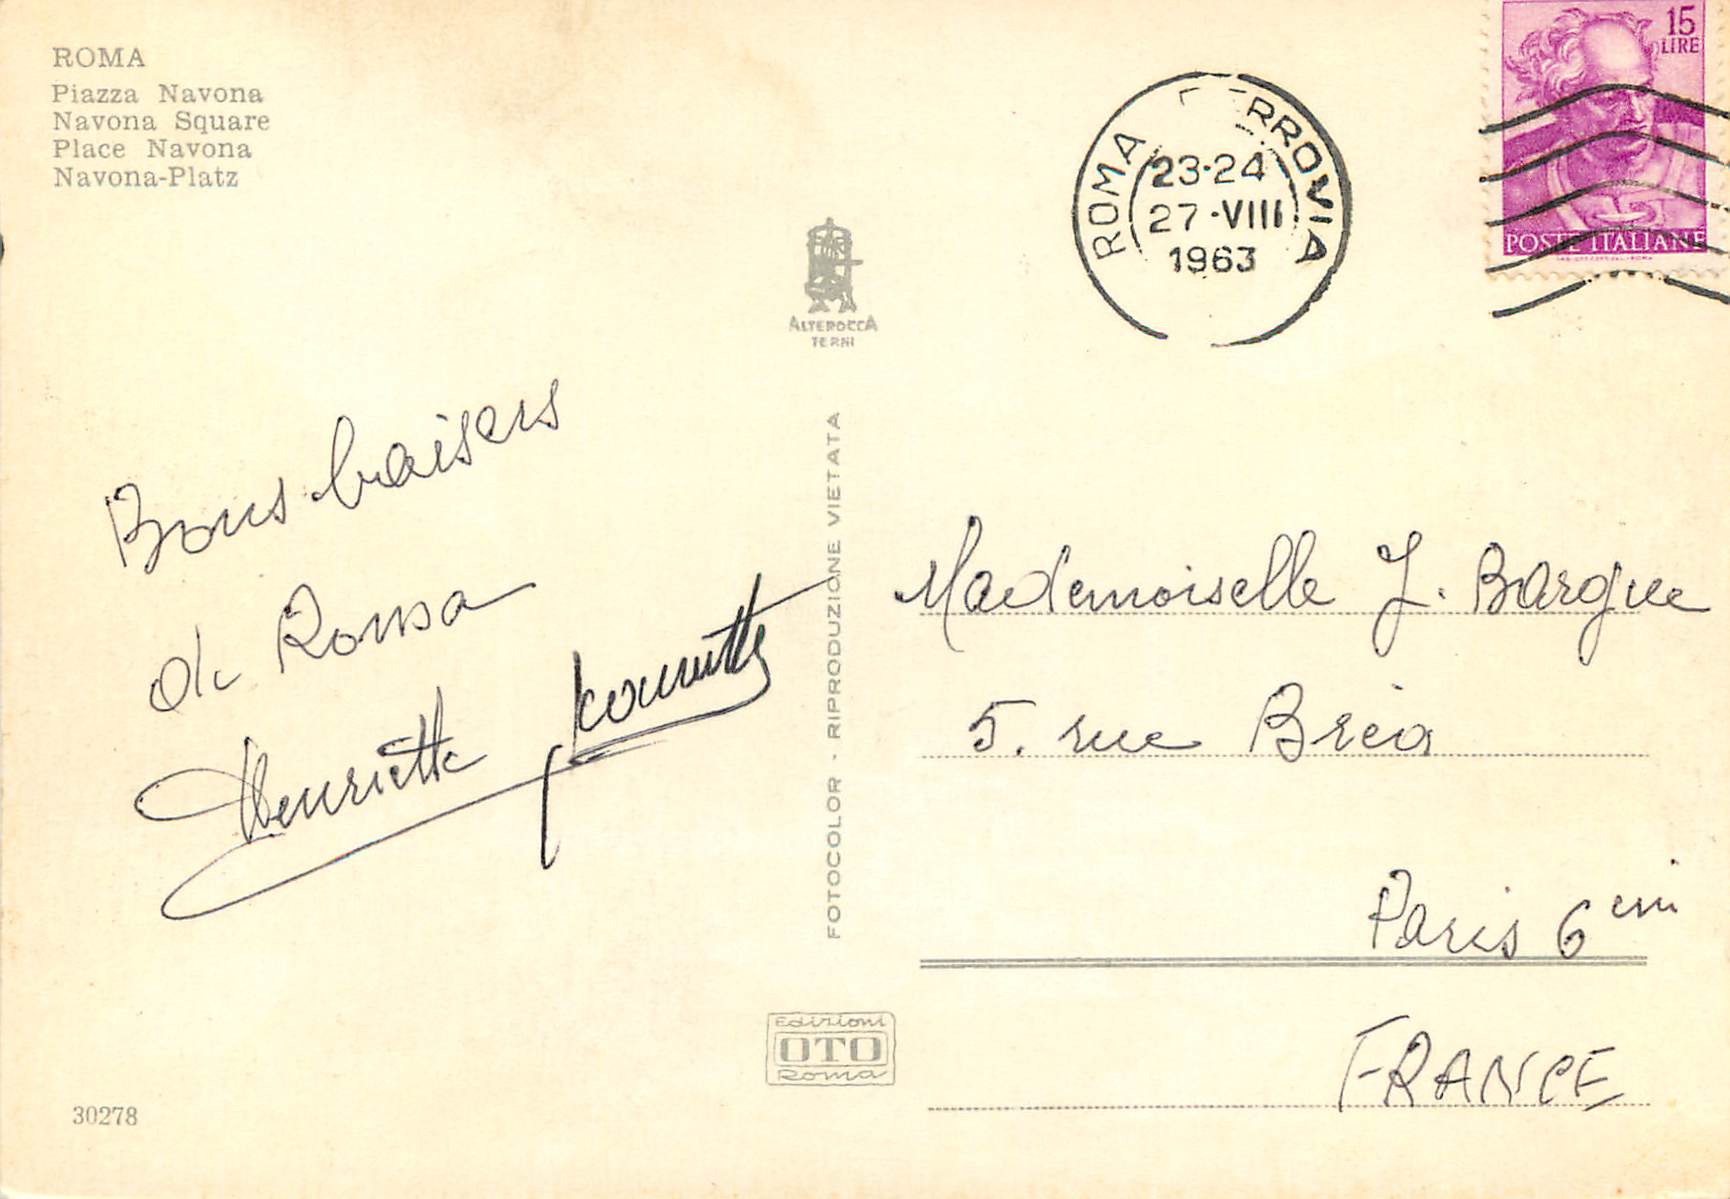 ROMA
Piazza Navona
Navona Square
Place Navona
Navona-Platz
ALTEROCCA
TERNI
FOTOCOLOR - RIPRODUZIONE VIETATA
ROMA RROVIA
23·24
27·VIII
1963
15
LIRE
POSTE ITALIANE
Bons baisers
de Roma
Henriette
Mademoiselle J. Bargue
5. rue Bréa
Paris 6
FRANCE
Edizioni
OTO
Roma
30278